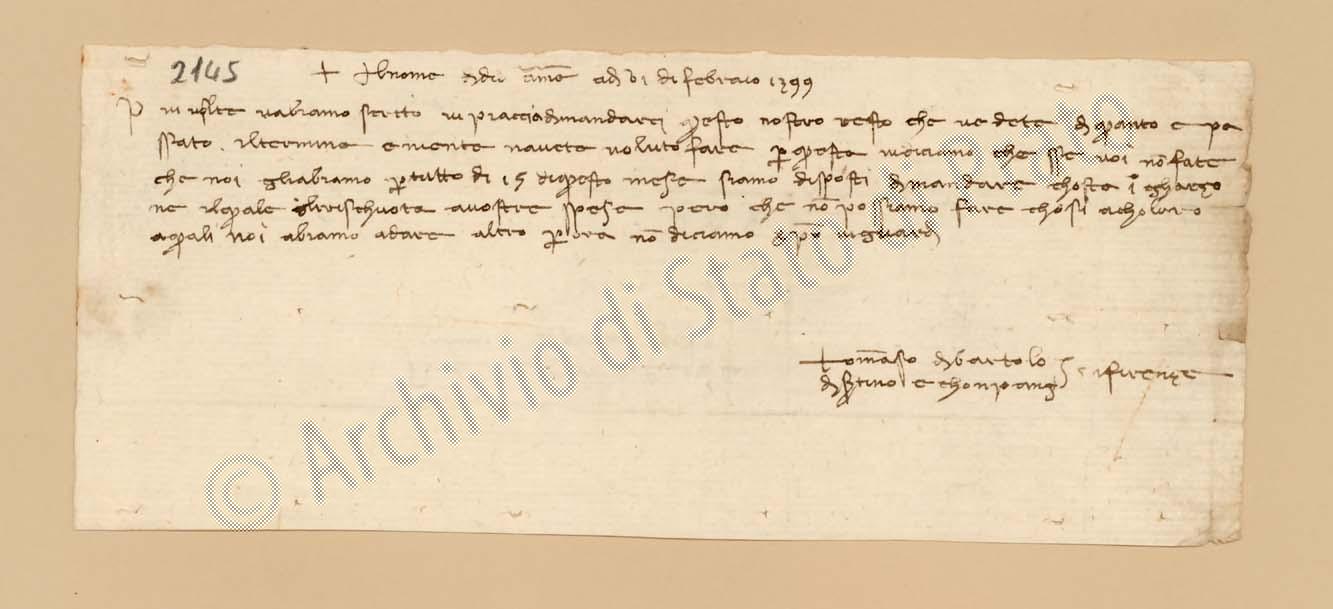 2145
+ Al nome di dio amen adì VI di febraio 1399
Piu volte v'abiamo scrito vi piaccia di mandarci questo nostro resto che vedete di quanto è pa
ssato il termine e niente n'avete voluto fare per questa vi diciamo che sse voi non fate
che noi gli abiamo per tutto dì 15 di questo mese siamo disposti di mandare chostà i
ne il quale gli rischuota a vostre spese però che non possiamo fare chosì a choloro
a quali noi abiamo a dare altro per ora non diciamo Cristo vi guardi
Tommaso di Bartolo
di e chonpangni i Firenze
© Archivio di Stato di Prato